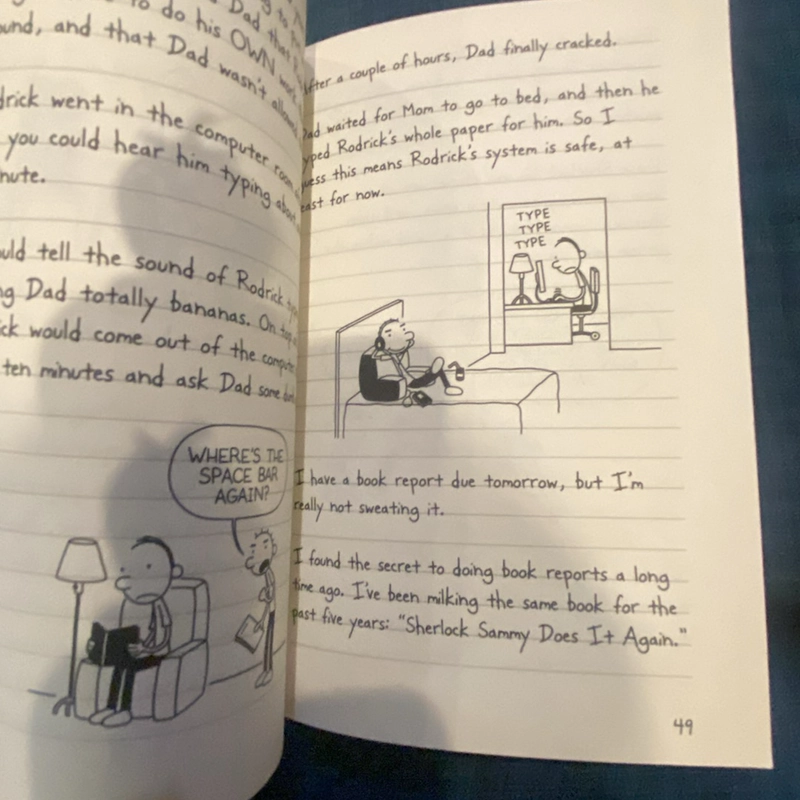 to do his OWN
Dad that
ound, and that Dad wasn't
drick went in the computer room
you could hear him typing about
nute.
uld tell the sound of Rodrick
ng Dad totally bananas. On top
ick would come out of the
ten minutes and ask Dad some
WHERE'S THE
SPACE BAR
AGAIN?
After a couple of hours, Dad finally cracked.
Dad waited for Mom to go to bed, and then he
typed Rodrick's whole paper for him. So I
guess this means Rodrick's system is safe, at
east for now.
TYPE
TYPE
TYPE
I have a book report due tomorrow, but I'm
really not sweating it.
I found the secret to doing book reports a long
time ago. I've been milking the same book for the
past five years: "Sherlock Sammy Does It Again."
49